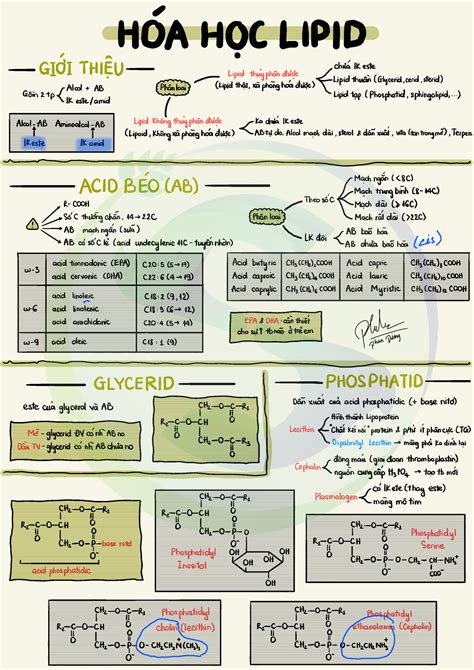 HÓA HỌC LIPID
GIỚI THIỆU
Gồm 2 tp
Alcol + AB
lK este/amid
Alcol-AB
Aminoalcol-AB
lK este
lK amid
Phân loại
Lipid thủy phân được
(Lipid thật, xà phòng hoá được)
chứa lK este
Lipid thuần (Glycerid, cerid, sterid)
Lipid tạp (Phosphatid, sphingolipid,...)
Lipid Không thủy phân được
(Lipoid, Không xà phòng hoá được)
Ko chứa lK este
AB tự do, Alcol mạch dài, sterol & dẫn xuất, vita (tan trong mỡ), Terpen
ACID BÉO (AB)
R-COOH
Số C thường chẵn, 14 → 22C
AB mạch ngắn (sữa)
AB có số C lẻ (acid undecylenic 11C - tuyến nhờn)
Phân loại
Theo số C
Mạch ngắn (<8C)
Mạch trung bình (8-14C)
Mạch dài (≥16C)
Mạch rất dài (>22C)
LK đôi
AB bão hoà
AB chưa bão hoà (cis)
ω-3
acid timnodonic (EPA)
C20:5 (5→17)
acid cervonic (DHA)
C22:6 (4→19)
ω-6
acid linoleic
C18:2 (9,12)
acid linolenic
C18:3 (6→12)
acid arachidonic
C20:4 (5→14)
ω-9
acid oleic
C18:1 (9)
Acid butyric
CH₃(CH₂)₂COOH
Acid capric
CH₃(CH₂)₈COOH
Acid caproic
CH₃(CH₂)₄COOH
Acid lauric
CH₃(CH₂)₁₀COOH
Acid caprylic
CH₃(CH₂)₆COOH
Acid Myristic
CH₃(CH₂)₁₂COOH
EPA & DHA: cần thiết
cho sự ↑ tb não ở trẻ em
GLYCERID
este của glycerol và AB
Mỡ - glycerid ĐV có nh` AB no
Dầu TV - glycerid có nh` AB chưa no
PHOSPHATID
Dẫn xuất của acid phosphatidic (+ base nitơ)
Lecithin
Hình thành Lipoprotein
"Chất kết nối" protein & phtử ít phân cực (TG)
Dipalmityl Lecithin → màng phổi ko dính lại
Cephalin
đông máu (giai đoạn thromboplastin)
nguồn cung cấp H₃PO₄ → tạo tb mới
Plasmalogen
có lK ete (thay este)
màng mô tim
base nitơ
acid phosphatidic
Phosphatidyl
Inositol
Phosphatidyl
Serine
Phosphatidyl
cholin (lecithin)
Phosphatidyl
ethanolamin (Cephalin)